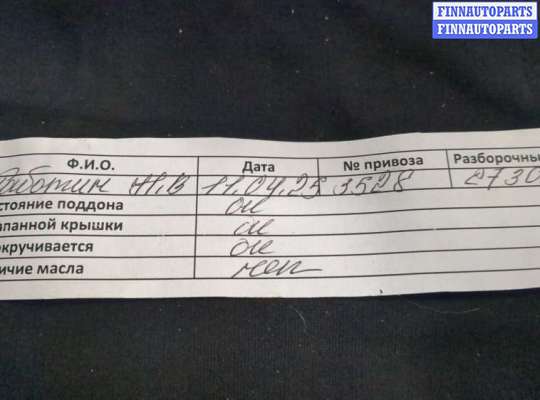 FINNAUTOPARTS
FINNAUTOPARTS
Ф.И.О. Дата № привоза Разборочны
11.04.25 3528 2730
стояние поддона ок
апанной крышки ок
окручивается ок
ичие масла нет